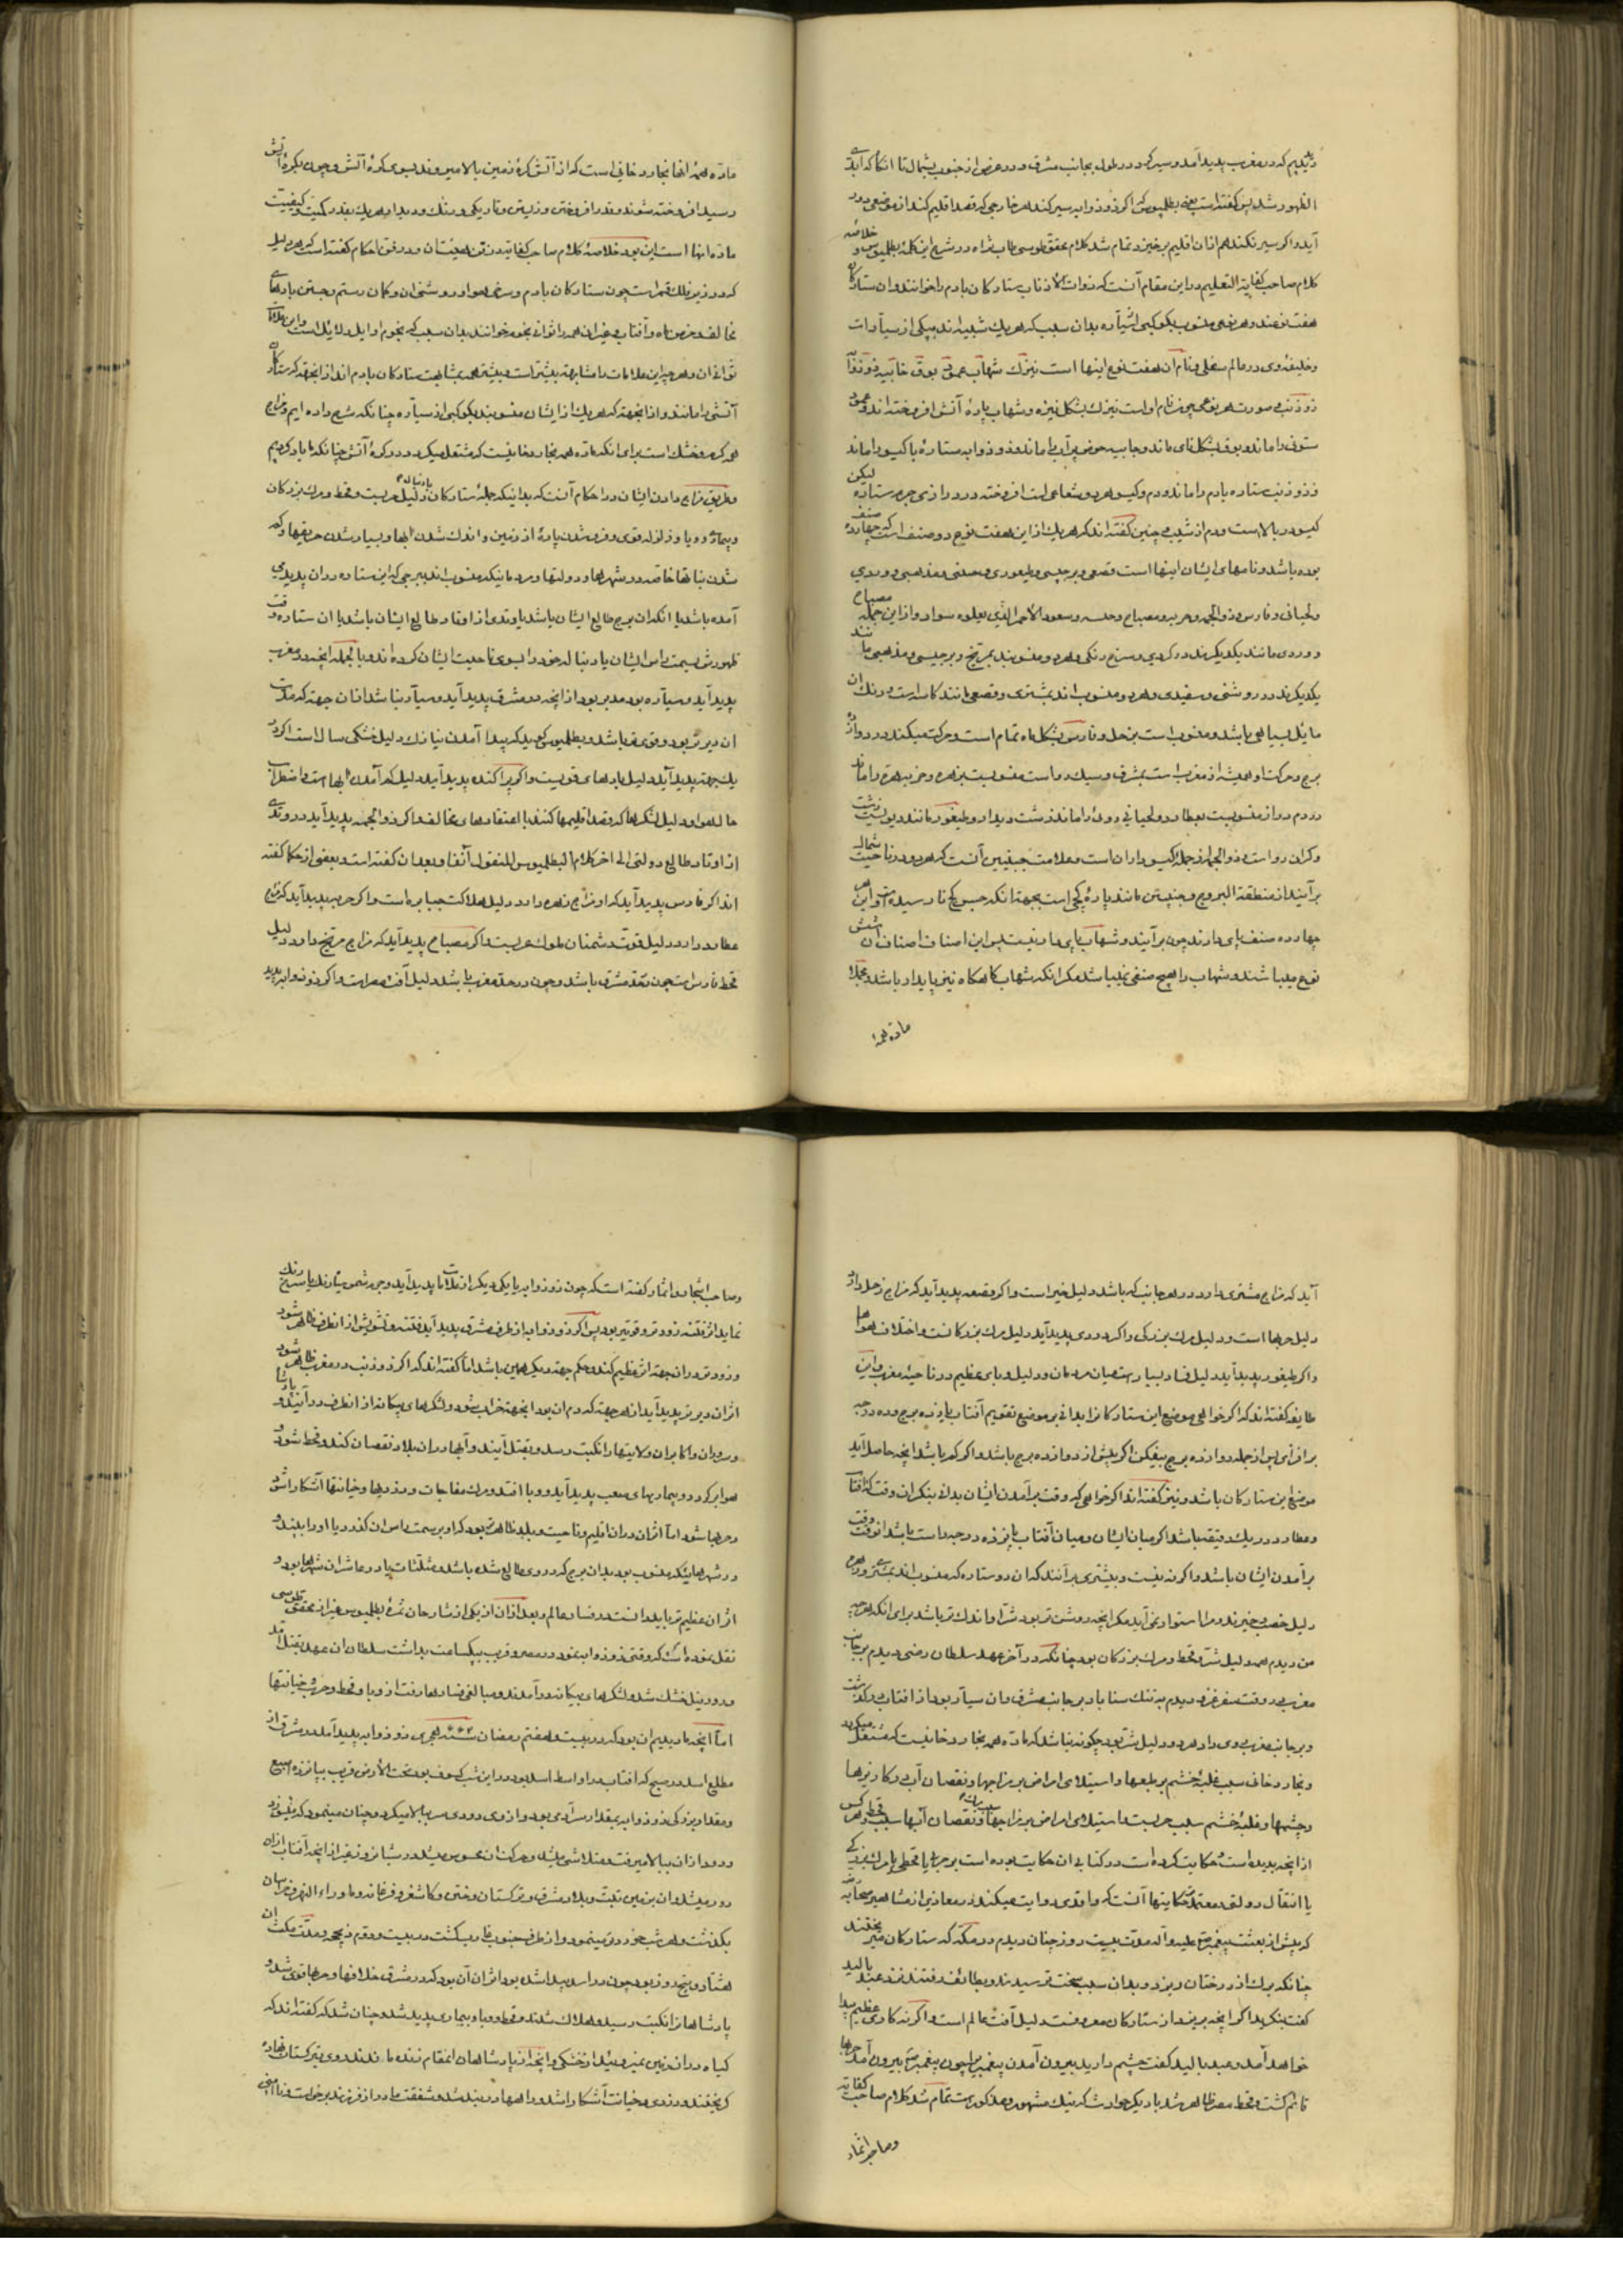 دیدیم که در مغرب پدید آمد و سیر کرد در طول بجانب مشرق و در عرض از جنوب بشمال تا انگاه که
الظهور شد پس گفته است بطلمیوس که اگر ذو ذوابه سیر کند خارجی که قصد اقلیم کند از موضعی دور
آید و اگر سیر نکند هم از ان اقلیم برخیزد تمام شد کلام محقق طوسی طاب ثراه در شرح این کلمهٔ بطلمیوس و خلاصه
کلام صاحب کفایة التعلیم در این مقام آنست که ذوات الاذناب ستارگان بادم را خوانند و ان ستارگان
هفت نوعند و هر نوعی منسوب بکوکبی از سیاره بدان سبب که هر یک شبیه اند بیکی از سیارات
و خلیفهٔ وی در عالم سفلی و نام آن هفت نوع اینها است نیزک شهاب عمود بوق خابیه ذو ذوابه
ذو ذنب و صورت هر نوعی چون نام او است نیزک بشکل نیزه و شهاب پارهٔ آتش افروخته اند و عمود
ستونی را ماند و بوق بشکل نای ماند و خابیه حوض پر آب را ماند و ذو ذوابه ستارهٔ با گیسو را ماند
و ذو ذنب ستاره بادم را ماند و دم و گیسو هر دو شعاعی است افروخته در درازی جرم ستاره لیکن
گیسو در بالاست و دم از شیب و چنین گفته اند که هر یک از این هفت نوع دو صنف است که چهارده صنف
بوده باشد و نامهای ایشان اینها است قصعی و برجیسی و طیفوری و مذهبی و وردی
و لحیانی و فارس و ذو الجمه و حربه و مصباح
و وردی مانند یکدیگرند در گردی و سرخ رنگی و هر دو منسوبند بمریخ و برجیسی و مذهبی مانند
یکدیگرند در روشنی و سفیدی و هر دو منسوب اند بمشتری و قصعی مانند کاسه است و رنگ ان
مایل بسیاهی باشد و منسوب است بزحل و فارس بشکل ماه تمام است و حرکت میکند در دوازده
برج و حرکت او همیشه از مغرب است بمشرق و سبک رو است منسوبست بزهره و حربه حربه را ماند
و گران رو است و ذو الجمه از جمله گیسو داران است و علامت آنست که در ناحیت شمال
برآیند از منطقة البروج
چهارده صنف
نوع میباشند و شهاب را هیچ صنفی نمیباشد مگر آنکه شهاب گاه گاه نیز پایدار باشد و مجملا
ماده همه
ماده همهٔ انها بخار دخانی است که از آتش کرهٔ زمین بالا میروند بسوی کرهٔ آتش و چون بکرهٔ آتش
رسید افروخته شوند و قدر افروختن و زیستن و تاریکی و رنگ و دیدار هر یک بقدر کمیت و کیفیت
ماده انها است این بود خلاصهٔ کلام صاحب کفایه در تعیین ایشان و در وفق احکام گفته است که هر دلیل
که در زیر فلک قمر است چون ستارگان بادم و سرخی هوا و روشنی ان و کمان رستم و جستن بادهای
مخالف و خرمن ماه و آفتاب و غیر ان همه را ثوانی نجوم خوانند بدان سبب که نجوم اوایل دلایل است و این علامات
ثوانی ان و هر چه این علامات را مشابهت بیشتر است ستارگان بادم اند از انجهت که ستارگان
آتشی را مانند و از انجهت که هر یک از ایشان منسوبند بکوکبی از سیاره چنانکه شرح داده ایم و مزاج
همه گرم و خشک است برای انکه ماده همه بخار دخانیست که مشتعل میگردد در کرهٔ آتش چنانکه یاد کردیم
و طریق مزاج دادن ایشان در احکام آنست که بدانیکه جملهٔ ستارگان با دنباله دلیل حربست و قحط و مرگ بزرگان
و بیماری و وبا و زلزله قوی و فرو شدن پارهٔ از زمین و اندک شدن آبها و بسیار شدن حریقها و کم
شدن نباتها خاصه در شهرها و دولتها و مردمانیکه منسوب اند ببرجی که این ستاره در ان پدید
آمده باشد یا انکه ان برج طالع ایشان باشد یا وتدی از اوتاد طالع ایشان باشد یا ان ستاره وقت
ظهورش بسمت راس ایشان یا دنباله خود را بسوی ناحیت ایشان کرده اند و بالجمله انچه در مغرب
پدید آید و سیاره بود مدبر بود از انچه در مشرق پدید آید و سیاره نباشد از ان جهت که مدت
ان دیرتر بود و قوی تر باشد و بطلمیوس گوید که پیدا آمدن نیازک دلیل خشکی سال است اگر در
یک جهت پدید آید دلیل بادهای قویست و اگر پراکنده پدید آید دلیل کم آمدن آبها است و اضطراب
حال هوا و دلیل لشکرها که قصد اقلیمها کنند با اعتقادهای مخالف و اگر ذو الجمه پدید آید در وتدی
از اوتاد طالع دولتی الی اخر کلام البطلمیوس المنقول آنفا و بعد از ان گفته است و بعضی از حکما گفته
اند اگر فارس پدید آید که او مزاج زهره دارد دلیل هلاکت جبابره است و اگر حربه پدید آید که مزاج
عطارد دارد دلیل قوت دشمنان ملوک عربست و اگر مصباح پدید آید که مزاج مریخ دارد دلیل
قحط فارس است چون در حد مشرق باشد و چون در حد مغرب باشد دلیل آفت مصر است و اگر ذو ذوابه پدید
آید که مزاج مشتری دارد در هر جانب که باشد دلیل خیر است و اگر قصعه پدید آید که مزاج زحل دارد
دلیل حربها است و دلیل مرگ بزرگی و اگر وردی پدید آید دلیل مرگ بزرگانست و اختلاف هواها
و اگر طیفور پدید آید دلیل فساد بسیار است میان مردمان و دلیل وبای عظیم در ناحیهٔ مغرب و این
طایفه گفته اند که اگر خواهی موضع این ستارگان را بدانی بر موضع تقویم آفتاب یازده برج و ده درجه
بر افزای پس از جمله دوازده برج بیفکن اگر بیش از دوازده برج باشد و اگر کم باشد انچه حاصل آید
موضع این ستارگان باشد و نیز گفته اند اگر خواهی که وقت برآمدن ایشان بدانی بنگر ان وقت که آفتاب
و عطارد در یک دقیقه باشد اگر میان ایشان و میان آفتاب پانزده درجه راست باشد انوقت وقت
برآمدن ایشان باشد و اگر نه نیست و بیشتری برآنند که ان دو ستاره که منسوب اند بمشتری و زهره
دلیل خصب و خیرند و مرا استوار نمی آید مگر انچه روشن تر بود شر او اندک تر باشد برای انکه هر چه
من دیدم همه دلیل شر و قحط و مرگ بزرگان بود چنانکه در آخر عهد سلطان رضی دیدم بر جانب
مغرب و در وقت سفر غز دیدم بر جانب مشرق و ان سیار بود از آفتاب در گذشت
و بر جانب مغرب وی دارد هر دو دلیل شر بود چگونه نباشد که ماده همه بخار دخانیست که مشتعل میگردد
و بخار دخانی سبب غلبهٔ خشم بر طبعها و استیلای امراض بر مزاجها و نقصان آب در کاریزها
و چشمها و غلبهٔ خشم سبب حربست و استیلای امراض بر مزاجها سبب مرگ و نقصان آبها سبب قحط و هر کس
از انچه بدیده است حکایت کرده است در کتابی ان حکایت بوده است بر حرب یا قحط یا مرگ بزرگی
یا انتقال دولتی و معتمدترین حکایتها آنست که واقدی روایت میکند در مغازی از مشاهیر صحابه
که پیش از بعثت پیغمبر صلی علیه و آله مدت بیست روز چنان دیدم در مکه که ستارگان میریختند
چنانکه برگ از درختان ریزد و بدان سبب سخت ترسیدند و بطائف رفتند نزد عبد یالیل
گفت بنگرید اگر انچه بریزد از ستارگان معروفست دلیل آفت عالم است و اگر نه کاری عظیم پیدا
خواهد آمد و عبد یالیل گفت چشم دارید بیرون آمدن پیغمبری را چون پیغمبر صلی بیرون آمد حربها
قایم گشت و قحط مصر ظاهر شد با دیگر حوادث که نیک مشهور و مذکور است تمام شد کلام صاحب کفایه
و صاحب اثمار
و صاحب اشجار و اثمار گفته است که چون ذو ذوابه یا یکی دیگر از علامات پدید آید و جرمش سیاه رنگ یا سرخ رنگ
نماید اثر فتنه زودتر و قویتر بود پس اگر ذو ذوابه از طرف مشرق پدید آید فتنه و تشویش از انطرف ظاهر شود
و زودتر و در ان جهت اثر عظیم کند و حکم جهت دیگر همین باشد اما گفته اند که اگر ذو ذنب در مغرب ظاهر شود
اثر ان دیرتر پدید آید از هر جهت که دم ان بود انجهت خراب شود و لشکرهای بیگانه از انطرف درآیند و پادشاهان
و سروران و اکابران ولایتها را نکبت رسد و بقتل آیند و آبها در ان بلاد نقصان کند و قحط شود
هوا بر گردد و بیماریهای صعب پدید آید و وبا افتد و مرگ مفاجات و دزدیها و خیانتها آشکارا شود
و حربها شود اما اثر ان در ان اقلیم و ناحیت و بلد ظاهرتر بود که او بر سمت راس ان گذرد یا او را بینند
و در شهرهائیکه منسوب بود بدان برج که در وی طالع شده باشد و مثلثات یا در عاشر ان شهرها بود
اثر ان عظیم تر باید دانست در فساد عالم و بعد از ان از یکی از شارحان ثمرهٔ بطلمیوس غیر از محقق طوسی
نقل نموده است که وقتی ذو ذوابه نمود در مصر و قریب بیکساعت بداشت سلطان ان عهد بقتل آمد
و رود نیل خشک شد و لشکرهای بیگانه درآمدند و مبالغی فسادها رفت از وبا و قحط و حرب و خیانتها
اما انچه ما دیدیم ان بود که در بیست و هفتم رمضان سنه هجری ذو ذوابه پدید آمد در مشرق از
مطلع اسد در صبح که آفتاب در اواسط اسد بود و در این شب کسوف بود تحت الارض قریب بپانزده اصبع
و مقدار بزرگی ذو ذوابه بمقدار سر آدمی بود و از وی دودی سر ببالا میکرد و چنان مینمود که
و دود از ان ببالا میرفت و متلاشی میشد و حرکت ان محسوس میشد در شبانروز غیر از انچه آفتاب ازان
دور میشد و ان بزمین تبت و بلاد مشرق و ترکستان و ختن و کاشغر و فرغانه و ماوراء النهر و خراسان
بگذشت و هر شب خوردتر مینمود و از طرف جنوب غارب گشت در بیست و دوم ذیحجه و مدت مکث ان
هشتاد و پنج روز بود چون در اسد پیدا شده بود اثر ان آن بود که در مشرق خلافها و حربها قوی شد و
پادشاهان را نکبت رسید و هلاک شدند و قحط و وبا و بیماری پدید شد و چنان شد که گفته اند که
گیاه در ان زمین نمیروئید از خشکی و انچه از پادشاهان ان مقام زنده ماندند روی بترکستان نهاده
گریختند و دزدی و خیانت آشکارا شد و راهها در بند شد و شفقت مادر از فرزند برخواست و ناامنی